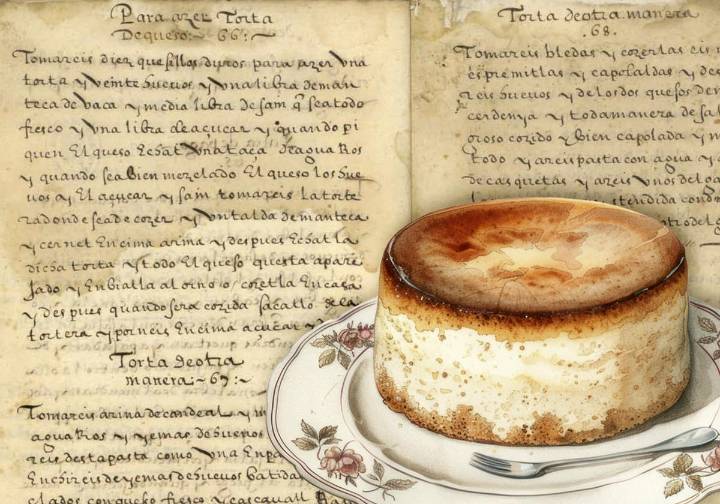 Para azer Torta
Dequeso:~ 66:~
Tomareis diez quesillos duros para azer vna
torta y veinte huevos y vna libra deman
teca de vaca y media libra de sain q̃ seatodo
fresco y vna libra deaçucar y quando pi
quen El queso Echat vnataça deagua Ros
y quando sea bien mezclado El queso los hue
uos y El açucar y sain tomareis la torte
radonde seade cozer y vntalda demanteca
y cernet Encima arina y despues Echat la
dicha torta y todo El queso questa apare
Jado y Enbialla al orno o cozetla En casa
y des pues quando sera cozida sacallo dela
tortera y porneis Encima açucar
Torta deotra
manera ~ 67:~
Tomareis arina decandeal y
agua Ros y yemas de huevos
reis destapasta como vna
Enchireis de yemas de huevos batidas
con queso fresco y
Torta deotra manera
.68.
Tomareis bledas y cozerlas
espremitlas y capolaldas y
reis huevos y delos dos quesos
cerdenya y toda manera de
cozido y bien capolada y
todo y areis pasta con agua y
de casquetas y areis vnos
estendida